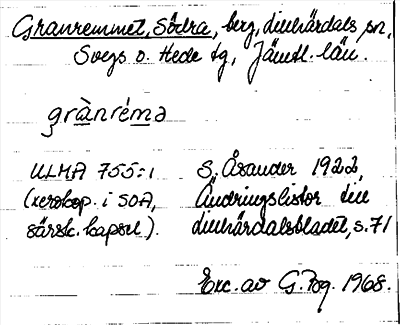 Granremmet, Södra, berg, Lillhärdals sn,
Svegs o. Hede tg, Jämtl. län.
grànréma
ULMA 755:1 S. Åsander 1922,
(xerokop. i SOA, Ändringslistor till
särsk. kapsel). Lillhärdalsbladet, s. 71
Exc. av G. Pog. 1968.